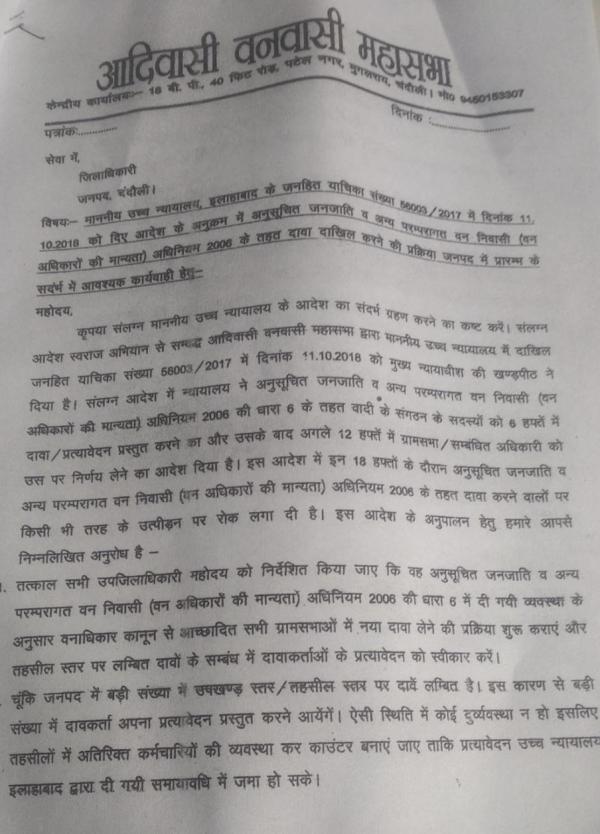 आदिवासी वनवासी महासभा
केन्द्रीय कार्यालयः– 18 बी. पी., 40 फिट रोड़, पटेल नगर, मुगलराय, चंदौली। मो0 9450153307
पत्रांकः.............
दिनांक :....................
सेवा में,
जिलाधिकारी
जनपद, चंदौली।
विषयः– माननीय उच्च न्यायालय, इलाहाबाद के जनहित याचिका संख्या 56003/2017 में दिनांक 11.
10.2018 को दिए आदेश के अनुक्रम में अनुसूचित जनजाति व अन्य परम्परागत वन निवासी (वन
अधिकारों की मान्यता) अधिनियम 2006 के तहत दावा दाखिल करने की प्रक्रिया जनपद में प्रारम्भ के
सदर्भ में आवश्यक कार्यवाही हेतु–
महोदय,
कृपया संलग्न माननीय उच्च न्यायालय के आदेश का संदर्भ ग्रहण करने का कष्ट करें। संलग्न
आदेश स्वराज अभियान से सम्बद्ध आदिवासी वनवासी महासभा द्वारा माननीय उच्च न्यायालय में दाखिल
जनहित याचिका संख्या 56003/2017 में दिनांक 11.10.2018 को मुख्य न्यायाधीश की खण्डपीठ ने
दिया है। संलग्न आदेश में न्यायालय ने अनुसूचित जनजाति व अन्य परम्परागत वन निवासी (वन
अधिकारों की मान्यता) अधिनियम 2006 की धारा 6 के तहत वादी के संगठन के सदस्यों को 6 हफ्ते में
दावा/प्रत्यावेदन प्रस्तुत करने का और उसके बाद अगले 12 हफ्ते में ग्रामसभा/सम्बंधित अधिकारी को
उस पर निर्णय लेने का आदेश दिया है। इस आदेश में इन 18 हफ्तों के दौरान अनुसूचित जनजाति व
अन्य परम्परागत वन निवासी (वन अधिकारों की मान्यता) अधिनियम 2006 के तहत दावा करने वालों पर
किसी भी तरह के उत्पीड़न पर रोक लगा दी है। इस आदेश के अनुपालन हेतु हमारे आपसे
निम्नलिखित अनुरोध है –
1. तत्काल सभी उपजिलाधिकारी महोदय को निर्देशित किया जाए कि वह अनुसूचित जनजाति व अन्य
परम्परागत वन निवासी (वन अधिकारों की मान्यता) अधिनियम 2006 की धारा 6 में दी गयी व्यवस्था के
अनुसार वनाधिकार कानून से आच्छादित सभी ग्रामसभाओं में नया दावा लेने की प्रक्रिया शुरू कराएं और
तहसील स्तर पर लम्बित दावों के सम्बंध में दावाकर्ताओं के प्रत्यावेदन को स्वीकार करें।
चूंकि जनपद में बड़ी संख्या में उपखण्ड़ स्तर/तहसील स्तर पर दावें लम्बित है। इस कारण से बड़ी
संख्या में दावकर्ता अपना प्रत्यावेदन प्रस्तुत करने आयेंगें। ऐसी स्थिति में कोई दुर्व्यवस्था न हो इसलिए
तहसीलों में अतिरिक्त कर्मचारियों की व्यवस्था कर काउंटर बनाएं जाए ताकि प्रत्यावेदन उच्च न्यायालय
इलाहाबाद द्वारा दी गयी समयावधि में जमा हो सके।